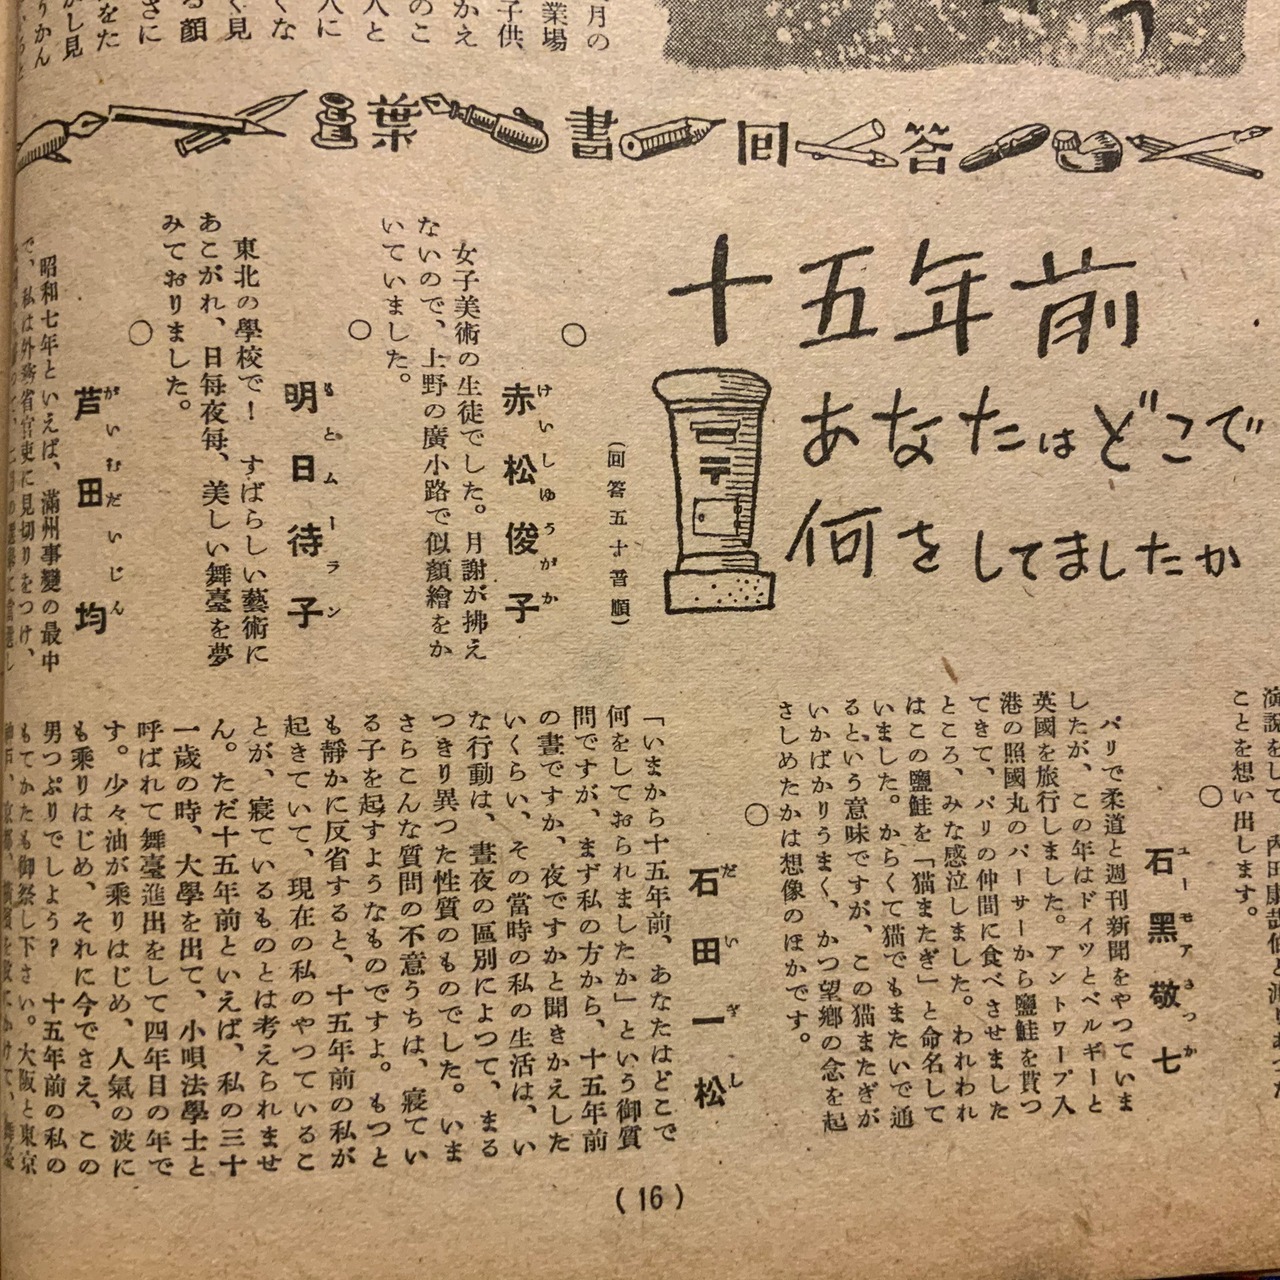 葉書回答
十五年前
あなたはどこで
何をしてましたか
(回答五十音順)
○
赤松俊子
けいしゆうがか
女子美術の生徒でした。月謝が拂え
ないので、上野の廣小路で似顏繪をか
いていました。
○
明日待子
もとムーラン
東北の學校で! すばらしい藝術に
あこがれ、日每夜每、美しい舞臺を夢
みておりました。
○
芦田均
がいむだいじん
昭和七年といえば、滿州事變の最中
で、私は外務省官吏に見切りをつけ、
演說をして、內田康哉伯と渡りあつた
ことを想い出します。
○
石黑敬七
ユーモアさつか
パリで柔道と週刊新聞をやつていま
したが、この年はドイツとベルギーと
英國を旅行しました。アントワープ入
港の照國丸のパーサーから鹽鮭を貰つ
てきて、パリの仲間に食べさせました
ところ、みな感泣しました。われわれ
はこの鹽鮭を「猫またぎ」と命名して
いました。からくて猫でもまたいで通
るという意味ですが、この猫またぎが
いかばかりうまく、かつ望鄕の念を起
さしめたかは想像のほかです。
○
石田一松
だいぎし
「いまから十五年前、あなたはどこで
何をしておられましたか」という御質
問ですが、まず私の方から、十五年前
の晝ですか、夜ですかと聞きかえした
いくらい、その當時の私の生活は、い
な行動は、晝夜の區別によつて、まる
つきり異つた性質のものでした。いま
さらこんな質問の不意うちは、寢てい
る子を起すようなものですよ。もつと
も靜かに反省すると、十五年前の私が
起きていて、現在の私のやつているこ
とが、寢ているものとは考えられませ
ん。ただ十五年前といえば、私の三十
一歲の時、大學を出て、小唄法學士と
呼ばれて舞臺進出をして四年目の年で
す。少々油が乘りはじめ、人氣の波に
も乘りはじめ、それに今でさえ、この
男つぷりでしよう? 十五年前の私の
もてかたも御察し下さい。大阪と東京
(16)